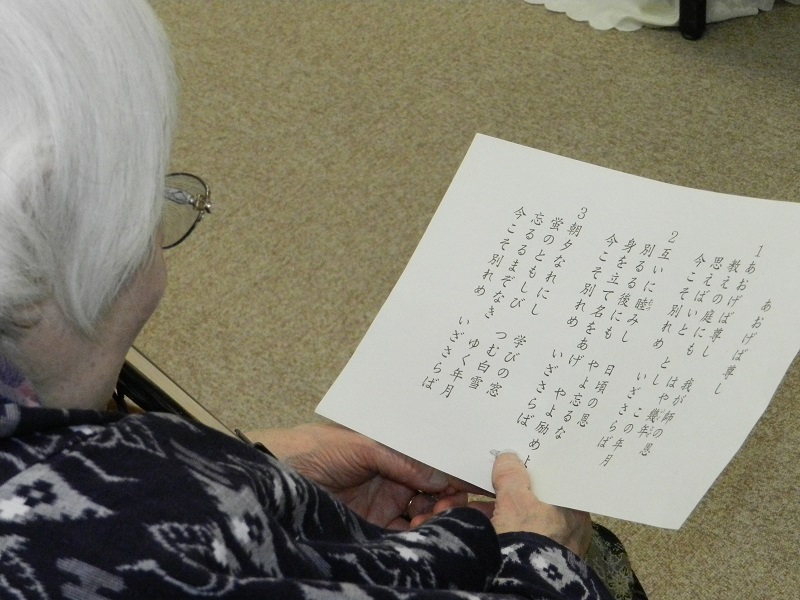 あおげば尊し
1 あおげば尊し 我が師の恩
教えの庭にも はや幾年
思えばいと とし この年月
今こそ別れめ いざさらば
2 互いに睦みし 日頃の恩
別るる後にも やよ忘るな
身を立て名をあげ やよ励めよ
今こそ別れめ いざさらば
3 朝夕なれにし 学びの窓
蛍のともしび つむ白雪
忘るるまぞなき ゆく年月
今こそ別れめ いざさらば